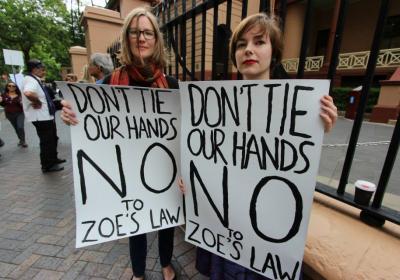 DON'T TIE
OUR HANDS
NO
TO
ZOE'S LAW
DON'T TIE
OUR HANDS
NO
TO
ZOE'S LAW